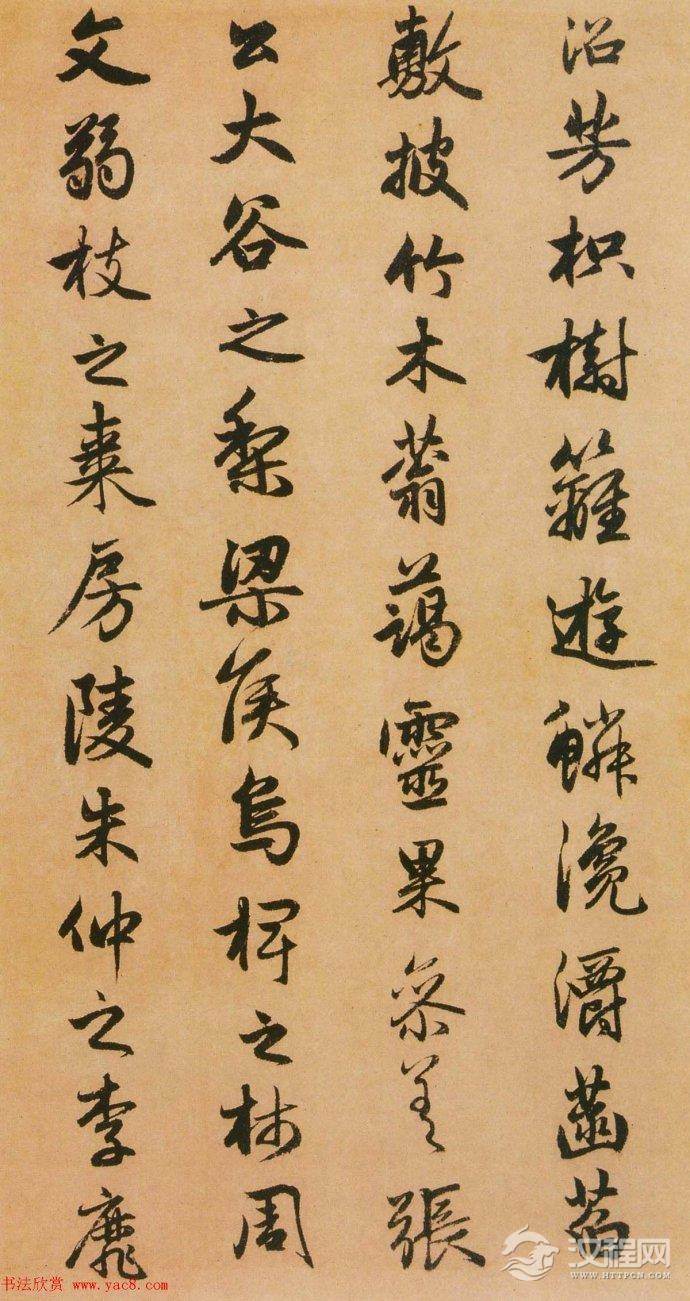 沼芳枳樹籬遊鱗瀺灂菡萏
敷披竹木蓊藹靈果參差張
公大谷之梨梁侯烏椑之柿周
文弱枝之棗房陵朱仲之李靡
书法欣赏 www.yac8.com
汉程网
WWW.HTTPCN.COM